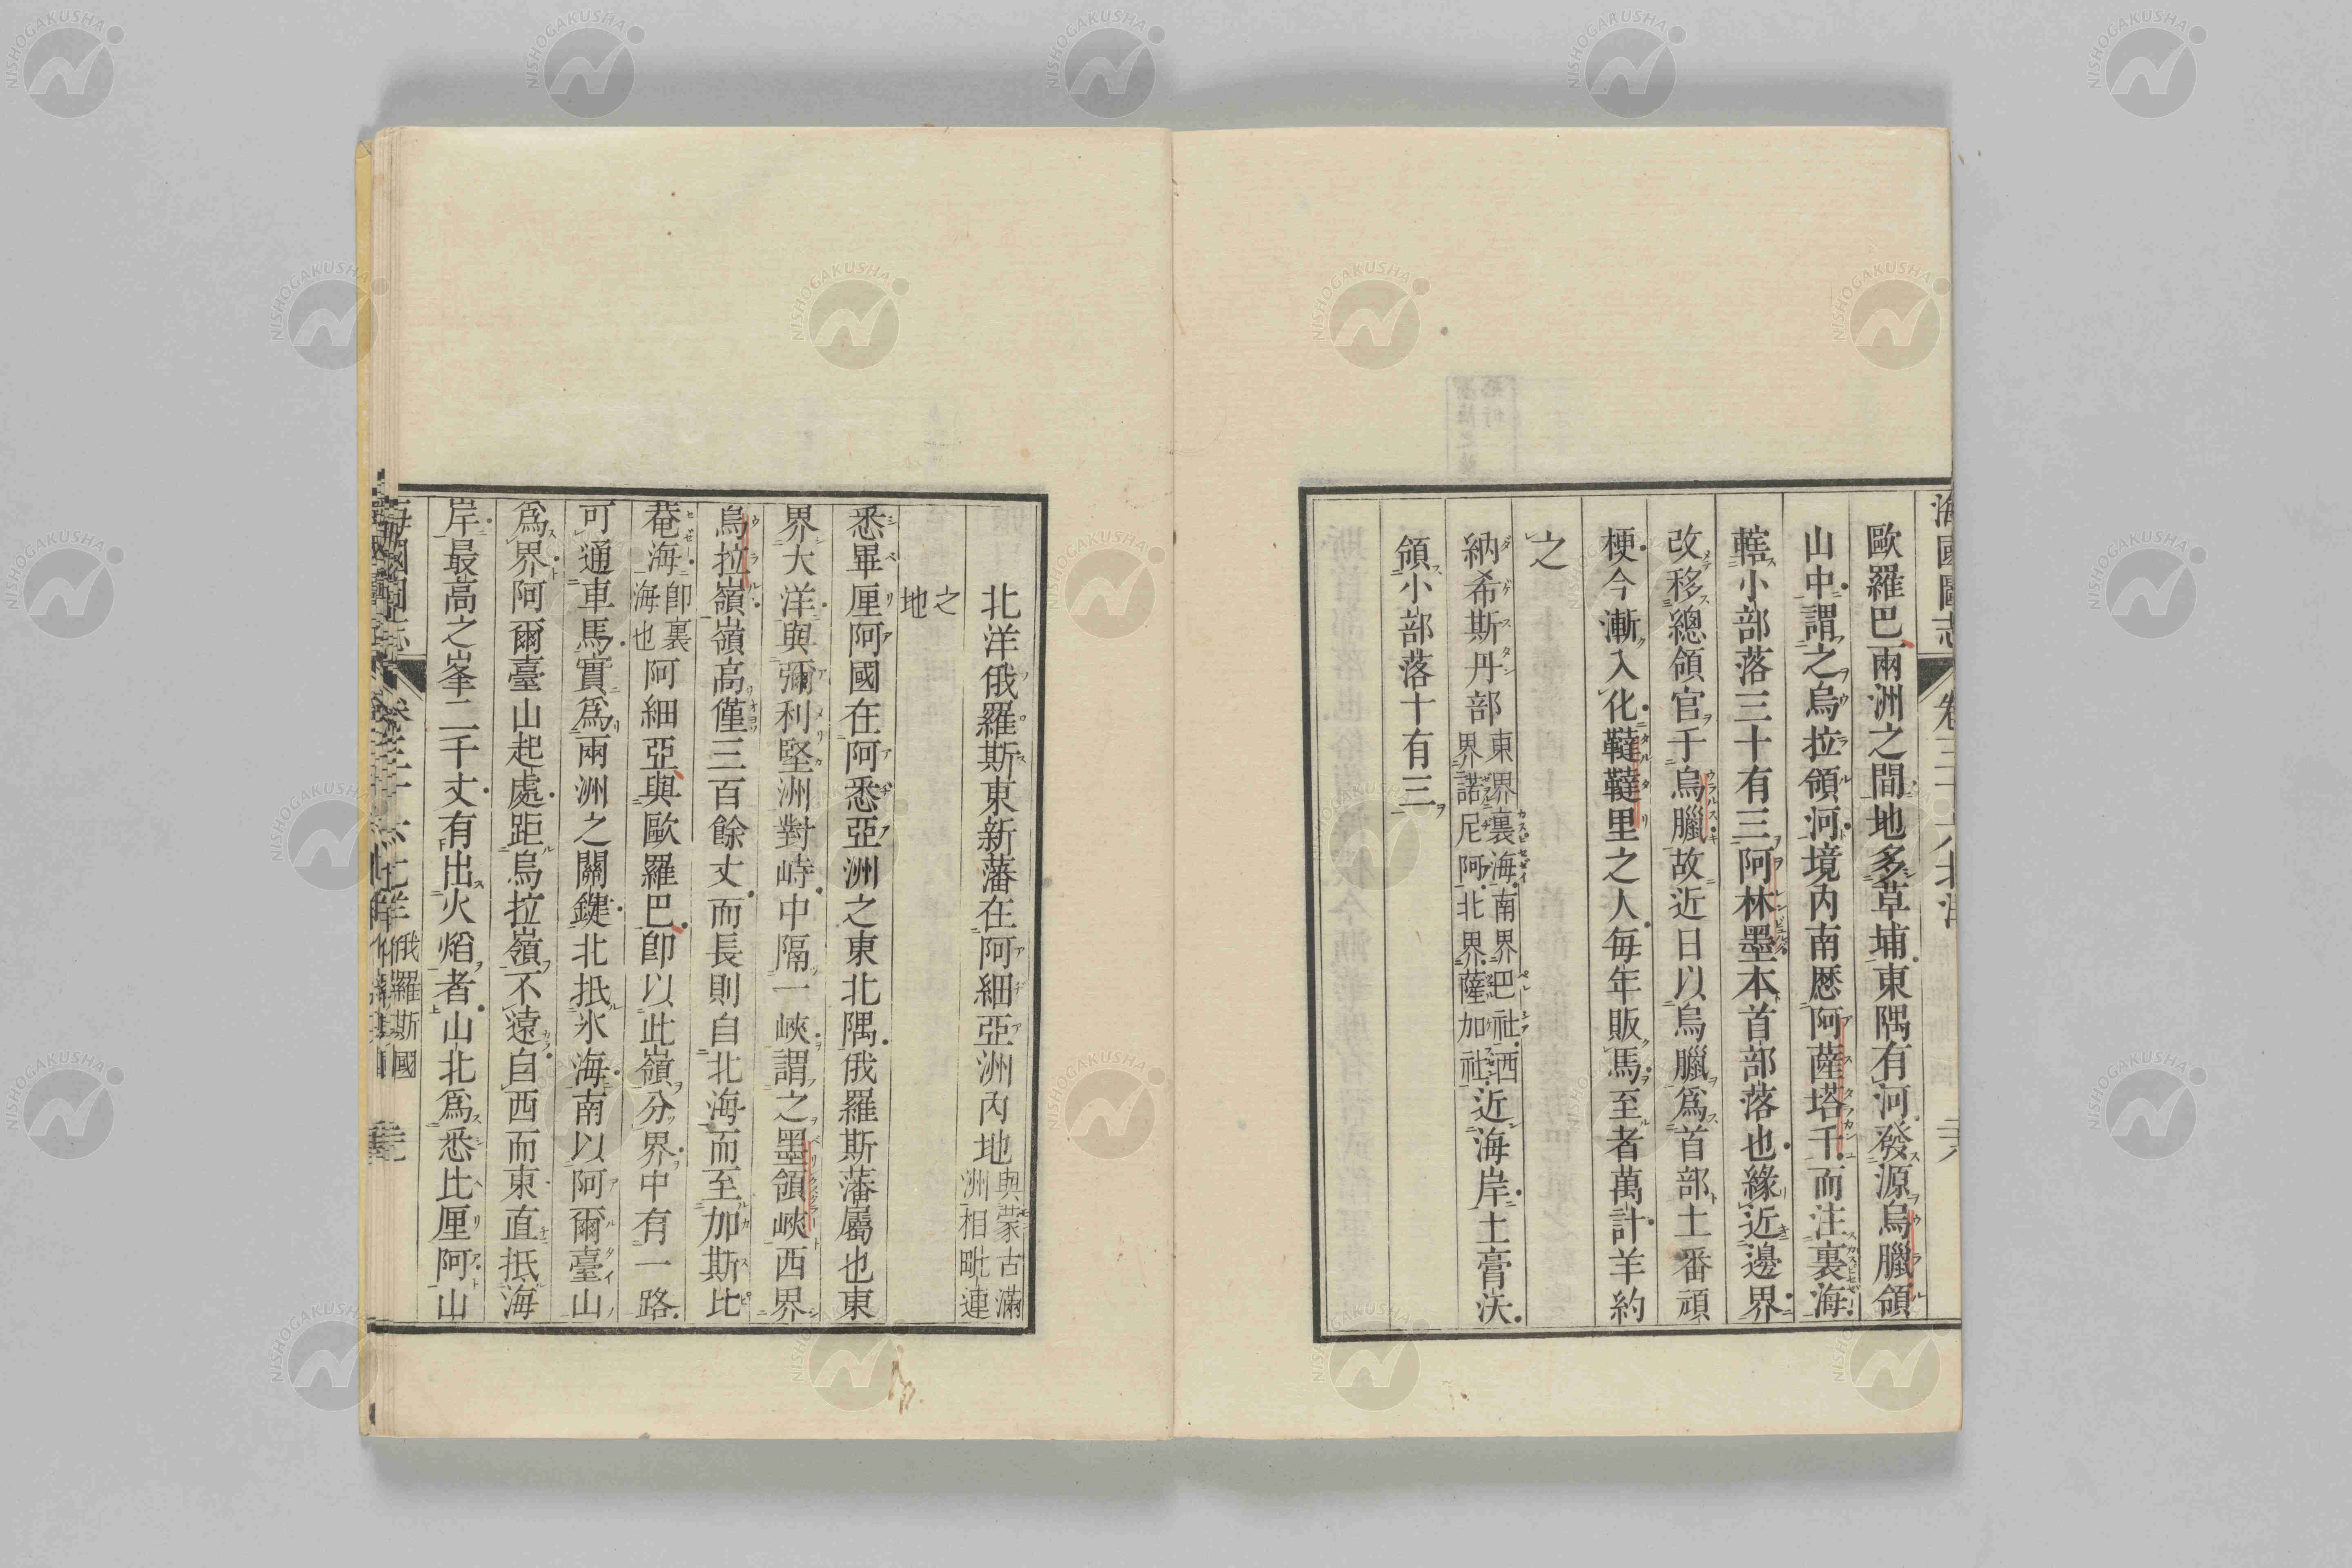 海國圖志
歐羅巴兩洲之間地多草埔東隅有河發源烏臘領
山中謂之烏拉領河境内南歴阿薩塔千而注裏海
轄小部落三十有三阿林墨本首部落也緣近邊界
改移總領官于烏臘故近日以烏臘爲首部土番頑
梗今漸入化韃韃里之人毎年販馬至者萬計羊約
之
納希斯丹部東界裏海南界巴社西界諾尼阿北界薩加社近海岸土膏沃
領小部落十有三
北洋俄羅斯東新藩在阿細亞洲内地與蒙古滿洲相毗連
之地
悉畢厘阿國在阿悉亞洲之東北隅俄羅斯藩屬也東
界大洋與彌利堅洲對峙中隔一峽謂之墨領峽西界
烏拉嶺嶺高僅三百餘丈而長則自北海而至加斯比
菴海卽裏海也阿細亞與歐羅巴卽以此嶺分界中有一路
可通車馬實爲兩洲之關鍵北抵氷海南以阿爾臺山
爲界阿爾臺山起處距烏拉嶺不遠自西而東直抵海
岸最高之峯二千丈有出火熖者山北爲悉比厘阿山
俄羅斯國
NISHOGAKUSHA